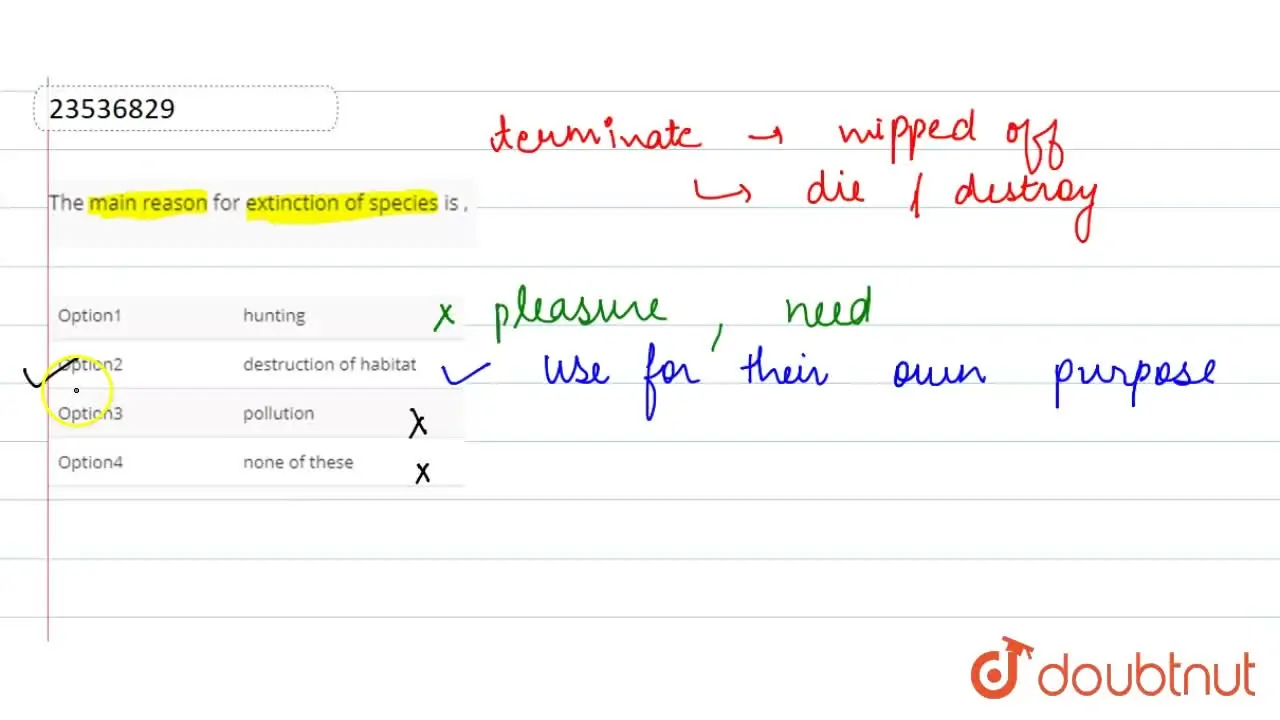 23536829
terminate → wipped off
↳ die / destroy
The main reason for extinction of species is ,
Option1 hunting x pleasure , need
✓ Option2 destruction of habitat ✓ use for their own purpose
Option3 pollution x
Option4 none of these x
doubtnut